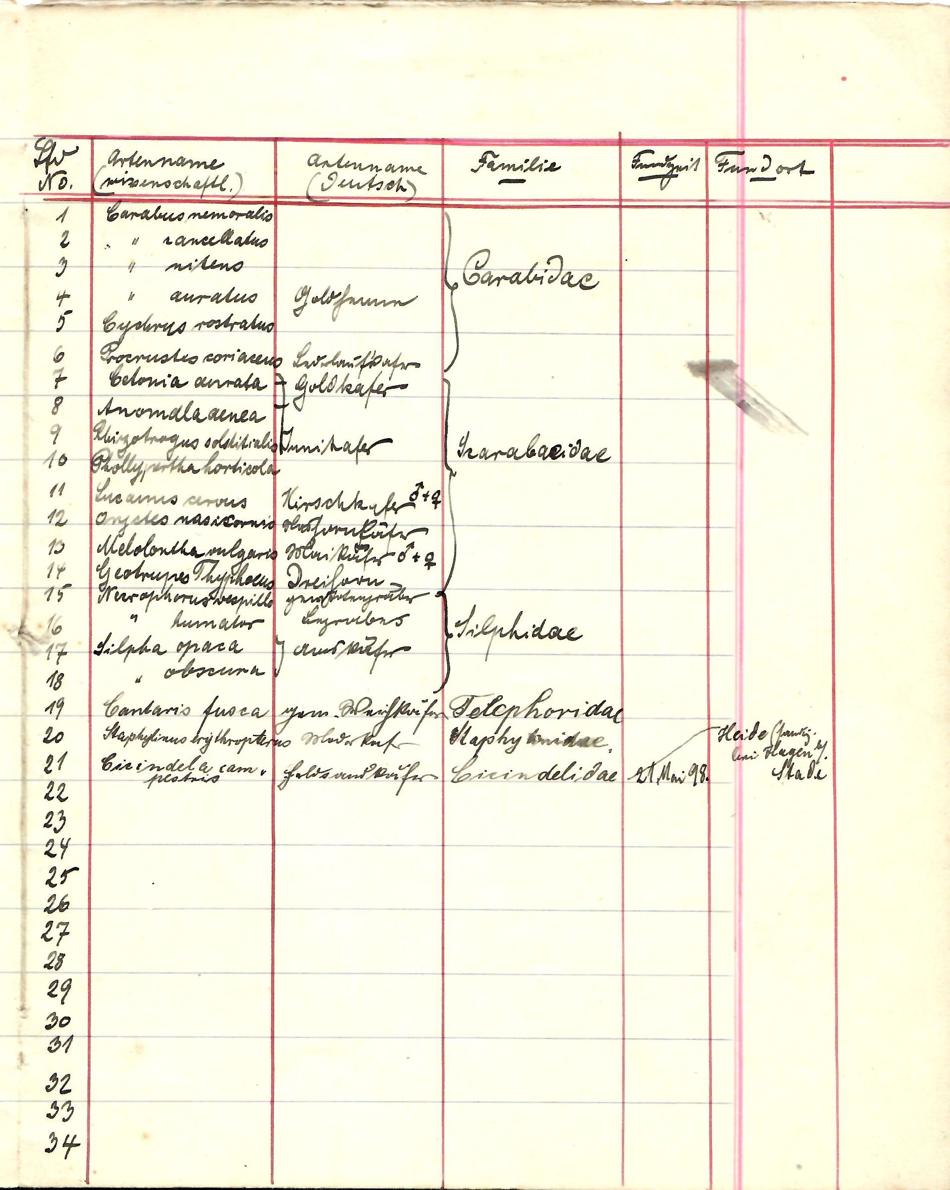 Lfd No. Artenname (wissenschaftl.) Artenname (Deutsch) Familie Fundzeit Fundort
1 Carabus nemoralis
2 " cancellatus
3 " nitens Carabidae
4 " auratus Goldhenne
5 Cychrus rostratus
6 Procrustes coriaceus Lederlaufkäfer
7 Cetonia aurata Goldkäfer
8 Anomala aenea
9 Rhizotrogus solstitialis Junikäfer Scarabaeidae
10 Phyllopertha horticola
11 Lucanus cervus Hirschkäfer ♂+♀
12 Oryctes nasicornis Nashornkäfer
13 Melolontha vulgaris Maikäfer ♂+♀
14 Geotrupes Thyphoeus Dreihorn
15 Necrophorus vespillo gem. Totengräber
16 " humator Silphidae
17 Silpha opaca Aaskäfer
18 " obscura
19 Cantaris fusca gem. Weichkäfer Telephoridae
20 Staphylinus erythropterus Moderkäf. Staphylinidae Heide
21 Cicindela campestris Feldsandkäfer Cicindelidae 21. Mai 98. bei Hagen b/ Stade
22
23
24
25
26
27
28
29
30
31
32
33
34